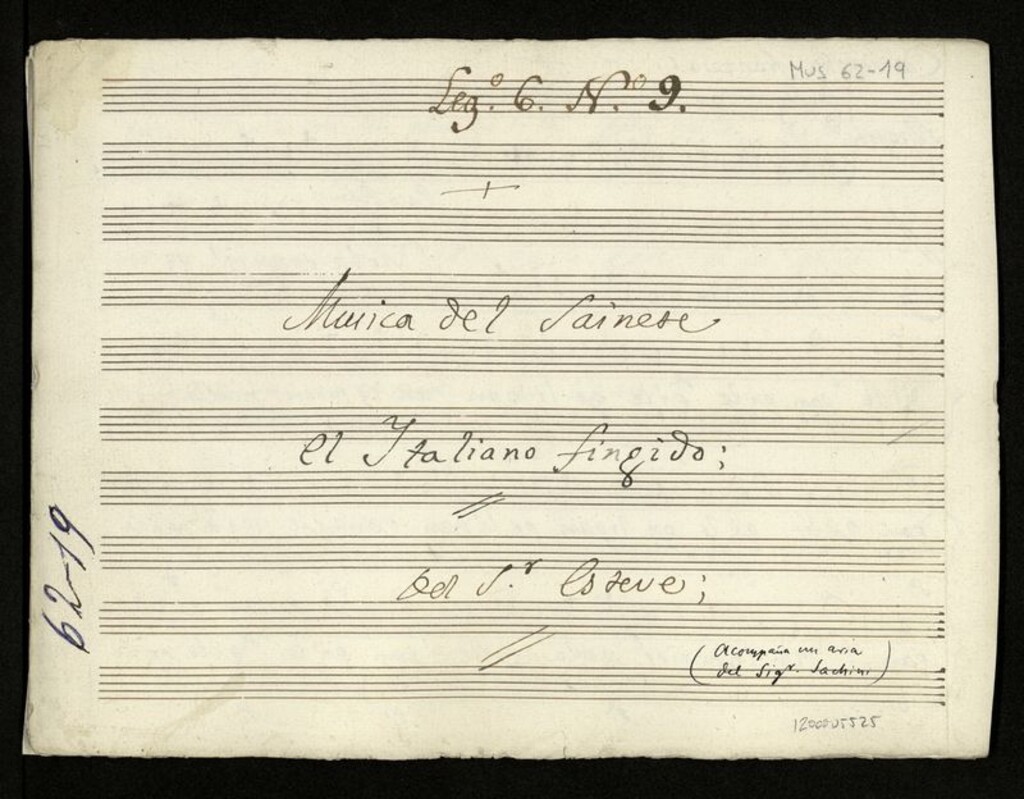 MUS 62-19
Leg.º 6. N.º 9.
Musica del Sainete
el Italiano fingido;
del S.r Esteve;
(Acompaña un aria
del Sigr. Sachini)
62-19
1200005525